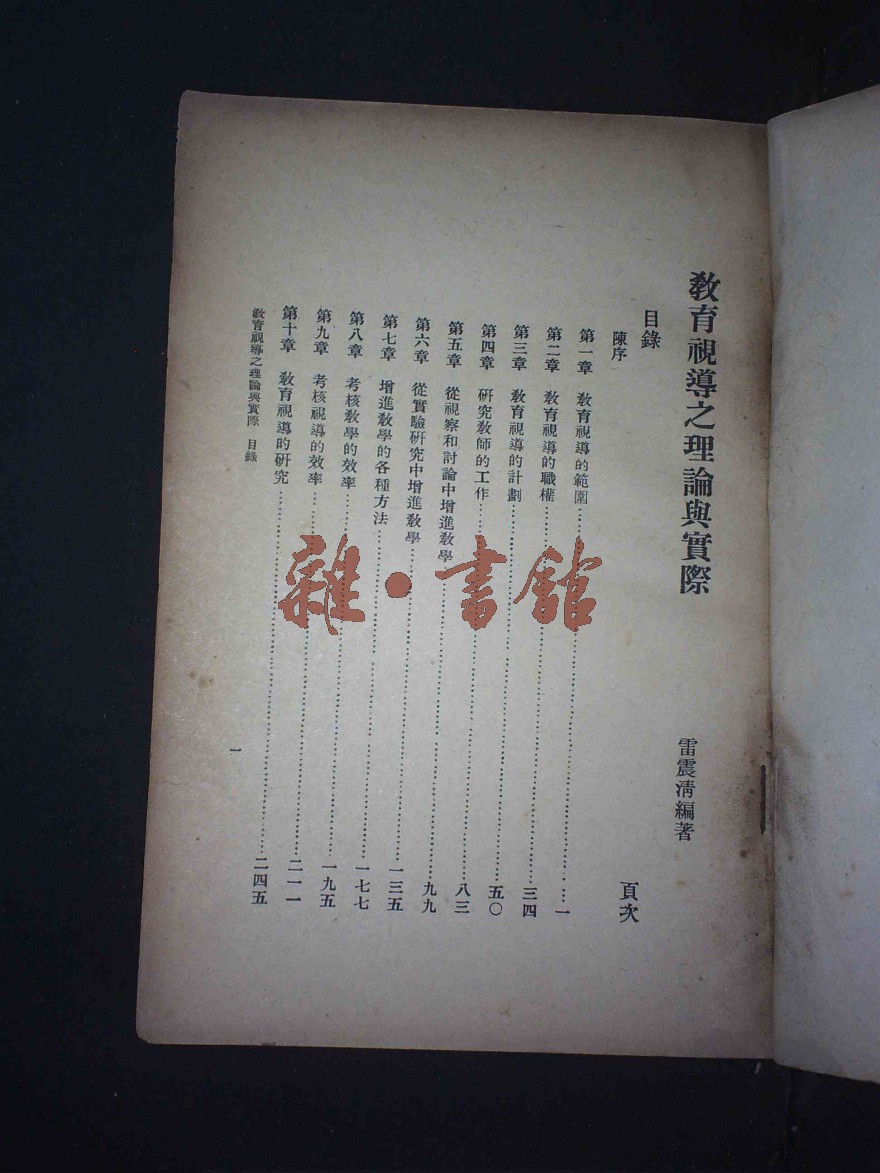 教育視導之理論與實際
雷震清編著
目錄
頁次
陳序
第一章　教育視導的範圍……一
第二章　教育視導的職權……三四
第三章　教育視導的計劃……五〇
第四章　研究教師的工作……八三
第五章　從視察和討論中增進教學……九九
第六章　從實驗研究中增進教學……一三五
第七章　增進教學的各種方法……一七七
第八章　考核教學的效率……一九五
第九章　考核視導的效率……二一一
第十章　教育視導的研究……二四五
教育視導之理論與實際　目錄
一
雜·書館